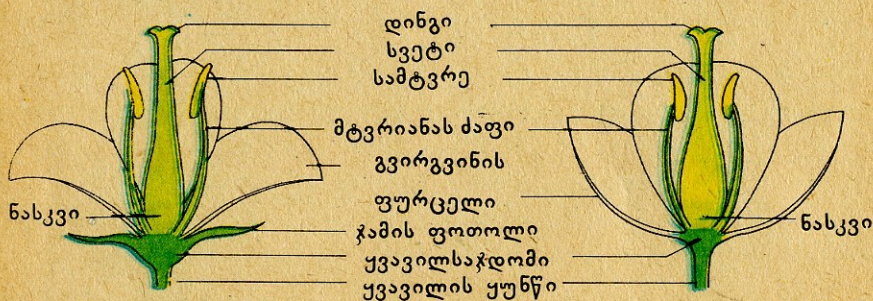 დინგი
სვეტი
სამტვრე
მტვრიანას ძაფი
გვირგვინის
ფურცელი
ნასკვი
ნასკვი
ჯამის ფოთოლი
ყვავილსაჯდომი
ყვავილის ყუნწი